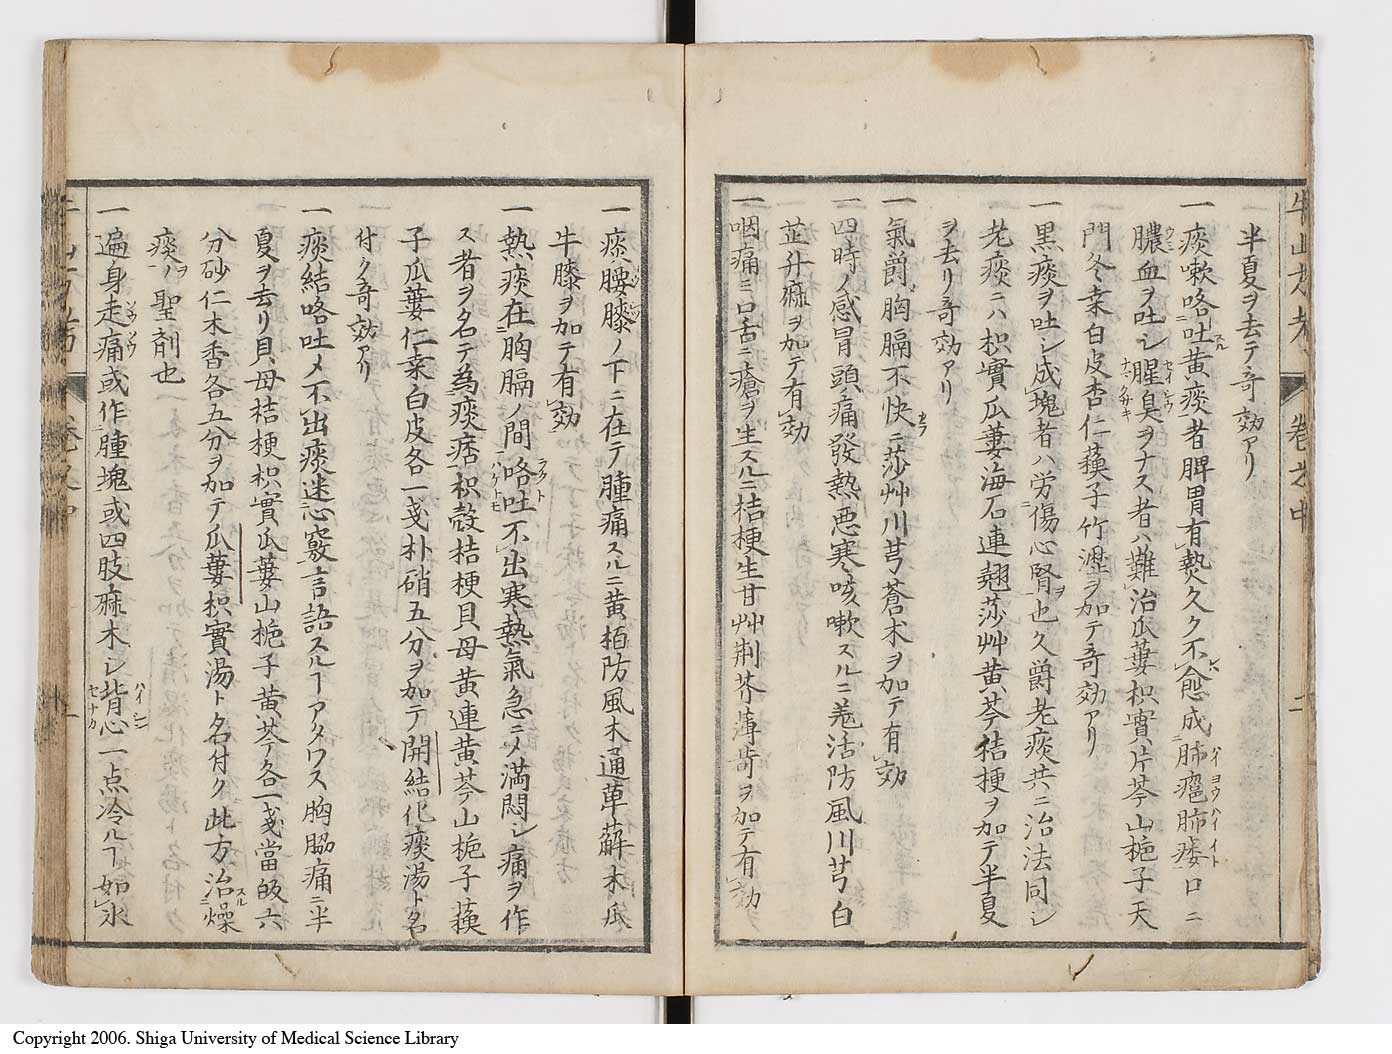 半夏ヲ去テ奇効アリ
一痰嗽咯吐黄痰者脾胃有熱久ク不愈成肺癰肺痿口ニ
膿血ヲ吐シ腥臭ヲナス者ハ難治瓜蔞枳實片芩山梔子天
門冬桒白皮杏仁蘓子竹瀝ヲ加テ奇効アリ
一黒痰ヲ吐シ成塊者ハ労傷心腎也久爵老痰共ニ治法同シ
老痰ニハ枳實瓜蔞海石連翹莎艸黄芩桔梗ヲ加テ半夏
ヲ去リ奇効アリ
一氣爵胸膈不快ニ莎艸川芎蒼木ヲ加テ有効
一四時ノ感冒頭痛發熱悪寒咳嗽スルニ羌活防風川芎白
芷升痲ヲ加テ有効
一咽痛ミ口舌ニ瘡ヲ生スルニ桔梗生甘艸荆芥薄荷ヲ加テ有効
牛山方考 卷之中 二
一痰腰膝ノ下ニ在テ腫痛スルニ黄栢防風木通萆薢木瓜
牛膝ヲ加テ有効
一熱痰在胸膈ノ間咯吐不出寒熱氣急ニメ満悶シ痛ヲ作
ス者ヲ名テ為痰痞枳殻桔梗貝母黄連黄芩山梔子蘓
子瓜蔞仁桒白皮各一戔朴硝五分ヲ加テ開結化痰湯ト名
付ク奇効アリ
一痰結咯吐メ不出痰迷心竅言語スルヿアタワス胸脇痛ニ半
夏ヲ去リ貝母桔梗枳實瓜蔞山梔子黄芩各一戔當皈六
分砂仁木香各五分ヲ加テ瓜蔞枳實湯ト名付ク此方治燥
痰ノ聖剤也
一遍身走痛或作腫塊或四肢痲木シ背心一点冷ルヿ如氷